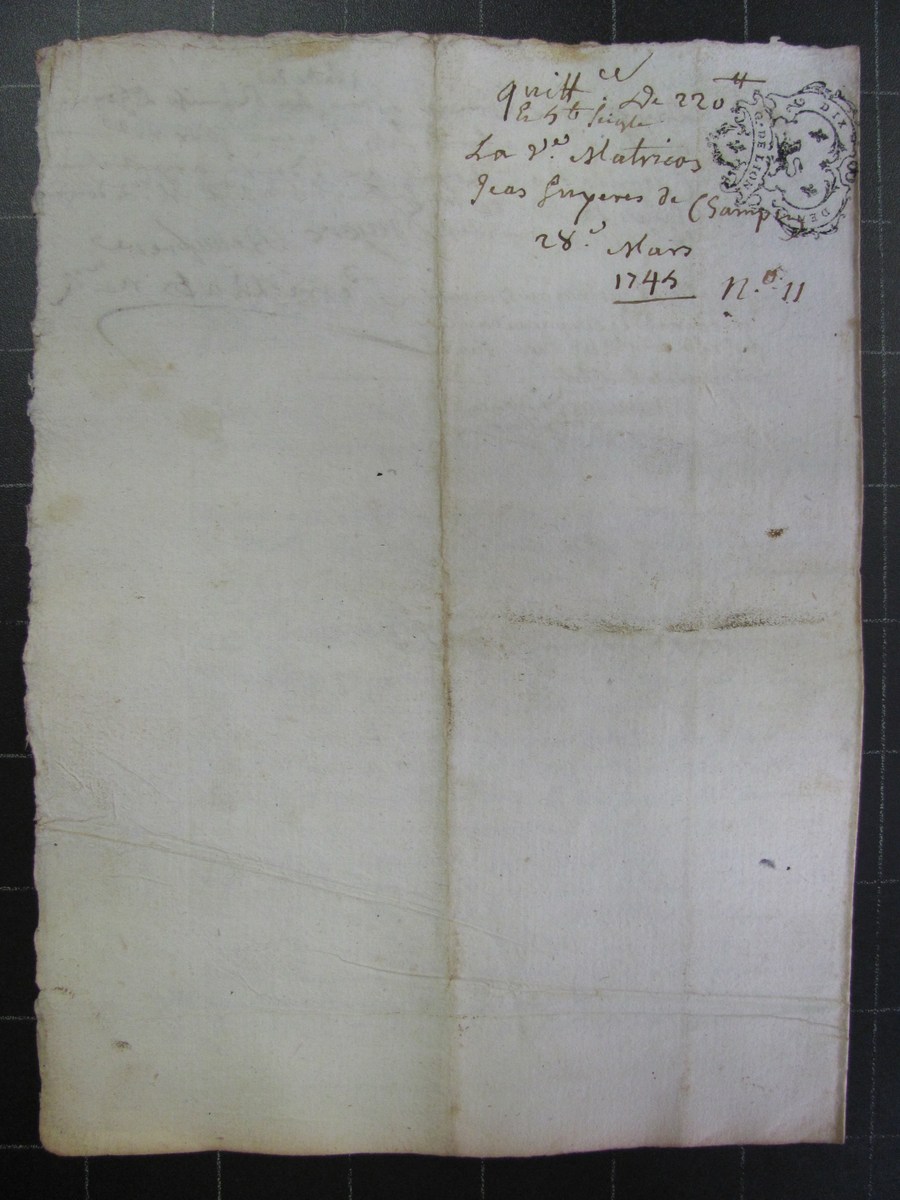 quitt.ce De 220 ₶
Et 5 b. seigle
La v.e Matricos
Jean Gruyeres de Champ
28.e Mars
1745
N.o 11
G. DE LION
DIX DEN